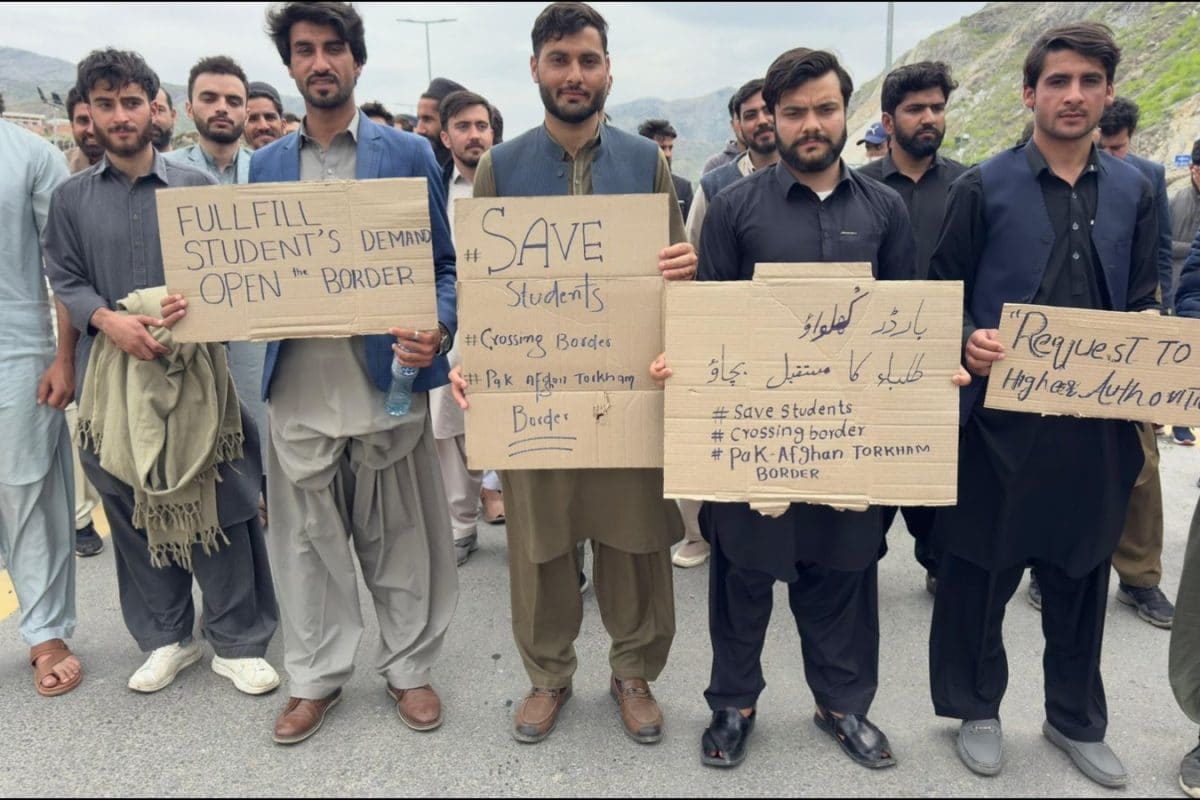 FULLFILL
STUDENT'S DEMAND
OPEN the BORDER
# SAVE
Students
# Crossing Border
# Pak Afghan TORKHAM
Border
بارڈر کھلواؤ
طلباء کا مستقبل بچاؤ
# Save Students
# Crossing border
# Pak-Afghan TORKHAM
BORDER
"Request To
Higher Authorit